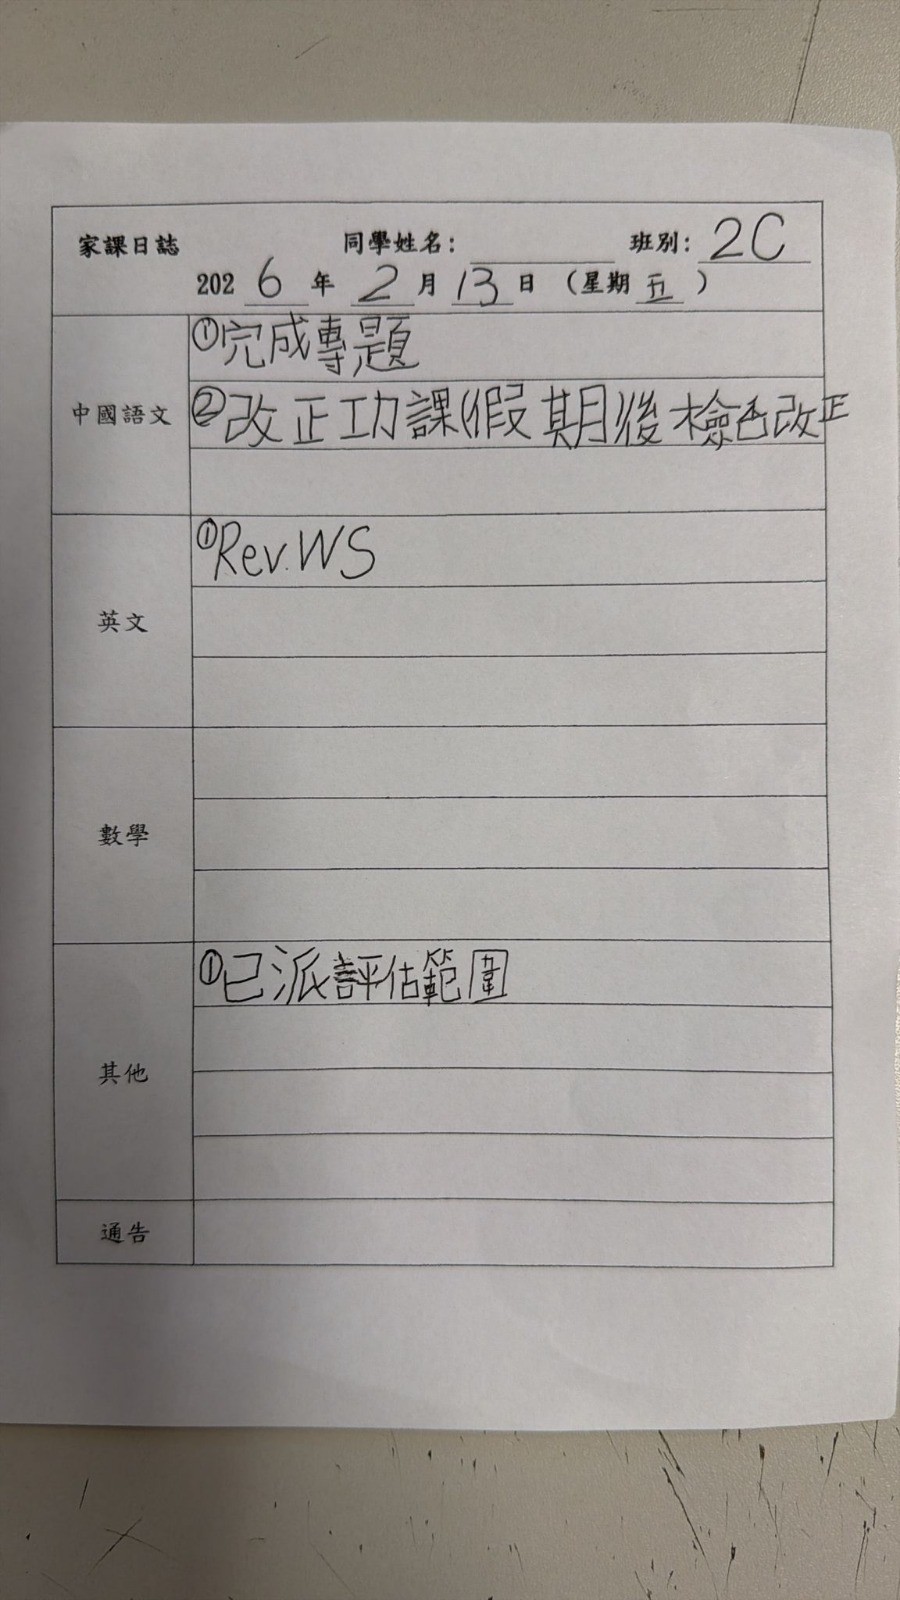 家課日誌 同學姓名: 班別: 2C
2026年 2月 13日 (星期五)
中國語文
①完成專題
②改正功課(假期後檢查改正
英文
①Rev. WS
數學
其他
①已派評估範圍
通告